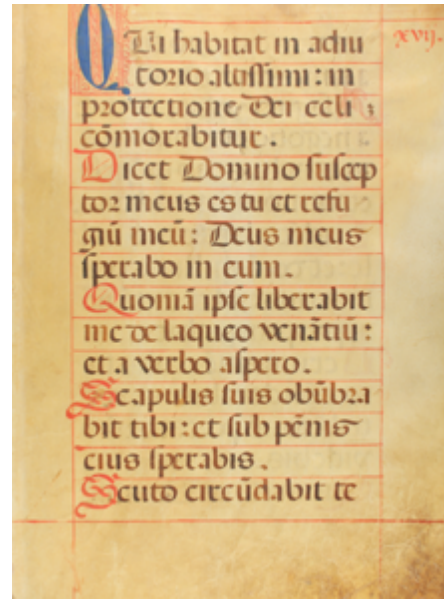 QUi habitat in adiu
torio altissimi : in
protectione Dei celi
cōmorabitur .
Dicet Domino suscep
tor meus es tu et refu
giū meū : Deus meus
sperabo in eum .
Quoniā ipse liberabit
me de laqueo venātiū :
et a verbo aspero .
Scapulis suis obūbra
bit tibi : et sub pēnis
eius sperabis .
Scuto circūdabit te
xvij.